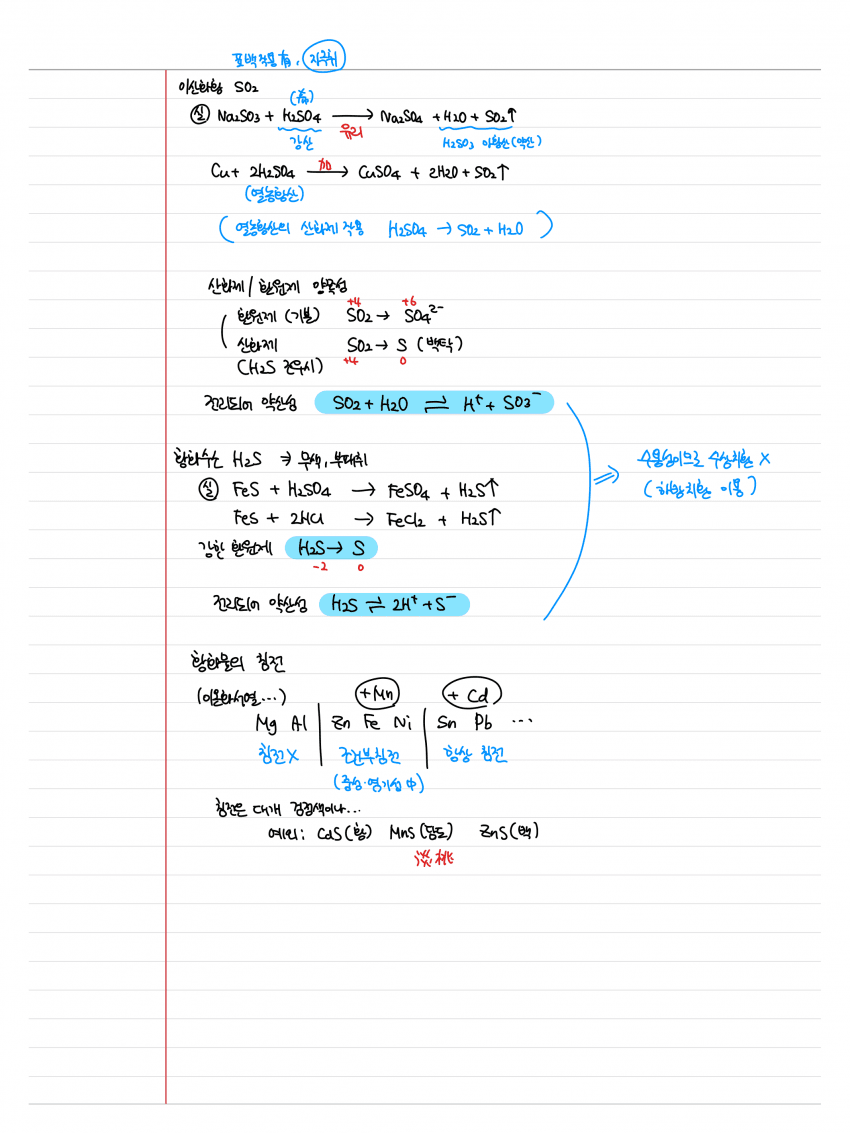 표백작용 有, 자극취
이산화황 SO2
(希)
실 Na2SO3 + H2SO4 → Na2SO4 + H2O + SO2↑
강산 유리 H2SO3 아황산(약산)
Cu + 2H2SO4 加→ CuSO4 + 2H2O + SO2↑
(열농황산)
( 열농황산의 산화제 작용 H2SO4 → SO2 + H2O )
산화제 / 환원제 양쪽성
+4 +6
환원제 (기본) SO2 → SO4²⁻
산화제 SO2 → S (백탁)
(H2S 건우시) +4 0
전리되어 약산성 SO2 + H2O ⇌ H⁺ + SO3⁻
황화수소 H2S ⇒ 무색, 부패취
수용성이므로 수상치환 X
실 FeS + H2SO4 → FeSO4 + H2S↑
(하방치환 이용)
FeS + 2HCl → FeCl2 + H2S↑
강한 환원제 H2S → S
-2 0
전리되어 약산성 H2S ⇌ 2H⁺ + S⁻
황화물의 침전
(이온화서열...) +Mn + Cd
Mg Al | Zn Fe Ni | Sn Pb ...
침전X 조건부침전 항상 침전
(중성·염기성 中)
침전은 대개 검정색이나...
예외: CdS(황) MnS(담도) ZnS(백)
淡桃